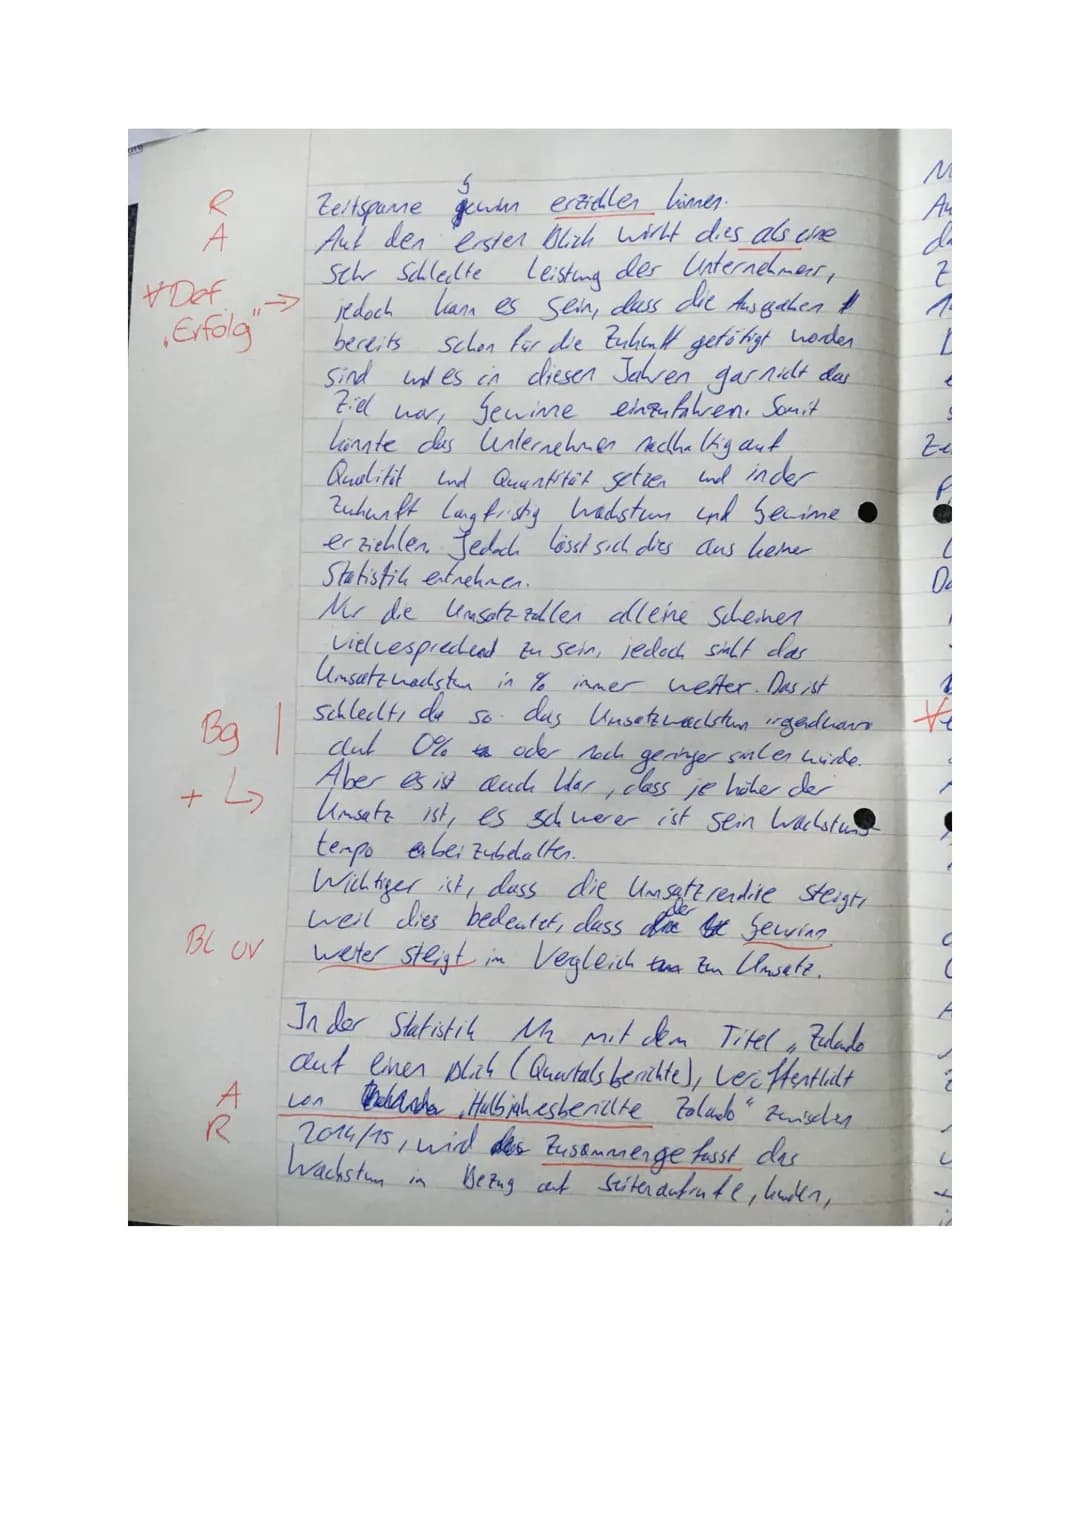 R Zeitspanne Gewinn erziehlen können.
A Auf den ersten Blick wirkt dies als eine
sehr schlechte Leistung des Unternehmens,
∀ Def. „Erfolg" → jedoch kann es sein, dass die Ausgaben
bereits schon für die Zukunft getätigt worden
sind und es in diesen Jahren garnicht das
Ziel war, Gewinne einzufahren. Somit
könnte das Unternehmen nachhaltig auf
Qualität und Quantität setzen und in der
Zukunft langfristig Wachstum und Gewinne
erziehlen. Jedoch lässt sich dies aus keiner
Statistik entnehmen.
Nur die Umsatzzahlen alleine scheinen
vielvesprechend zu sein, jedoch sinkt das
Umsatzwachstum in % immer weiter. Das ist
Bg schlecht, da so das Umsatzwachstum irgendwann
auf 0% oder noch geringer sinken würde.
+ ↳ Aber es ist auch klar, dass je höher der
Umsatz ist, es schwerer ist sein Wachstums-
tempo beizubehalten.
Wichtiger ist, dass die Umsatzrendite steigt,
weil dies bedeutet, dass der Gewinn
BL UV weiter steigt im Vergleich zum Umsatz.
In der Statistik M2 mit dem Titel „Zalando
auf einen Blick (Quartalsberichte), veröffentlicht
A von „Halbjahresberichte Zalando" zwischen
R 2014/15, wird Zusammengefasst das
Wachstum in Bezug auf Seitenaufrufe, Kunden,